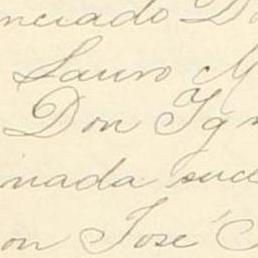 nciado Do
Lauro M
Don Ign
nada suc
on José